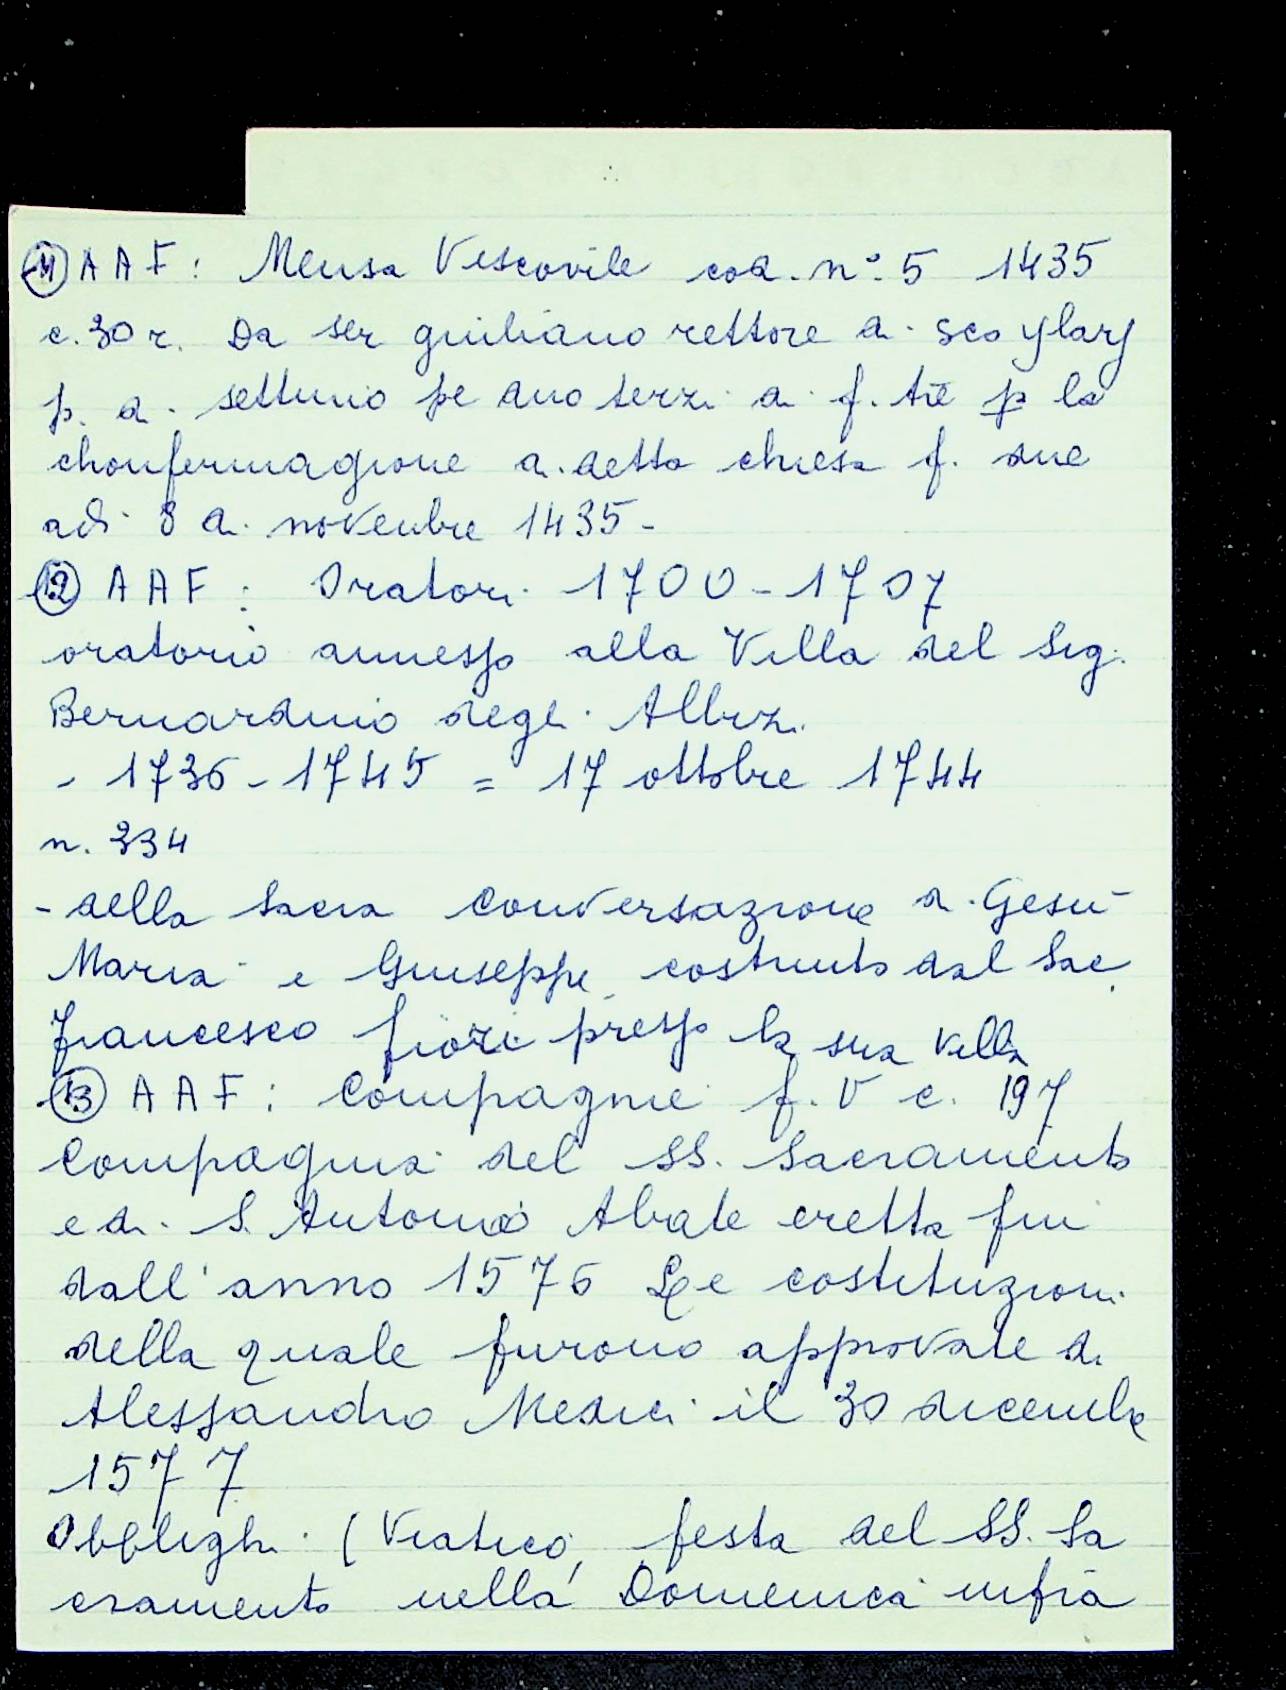 11 AAF: Mensa Vescovile cod. n° 5 1435
c. 30 r. Da ser giuliano rettore di sco ylary
p. a. settimo pe dno terzi di f. tre p la
chonfermagione di detta chiesa f. due
adi 8 di novenbre 1435 -
12 AAF: Oratori 1700 - 1707
oratorio annesso alla Villa del Sig.
Bernardino degli Albizi
- 1736 - 1745 = 17 ottobre 1744
n. 334
- della Sacra Conversazione di Gesù
Maria e Giuseppe costruito dal Sac.
Francesco fiori presso la sua villa
13 AAF: Compagnie f. V c. 197
Compagnia del SS. Sacramento
e di S. Antonio Abate eretta fin
dall'anno 1576 Le costituzioni
della quale furono approvate di
Alessandro Medici il 30 dicembre
1577
Obblighi (Viatico, festa del SS. Sa
cramento nella Domenica infra